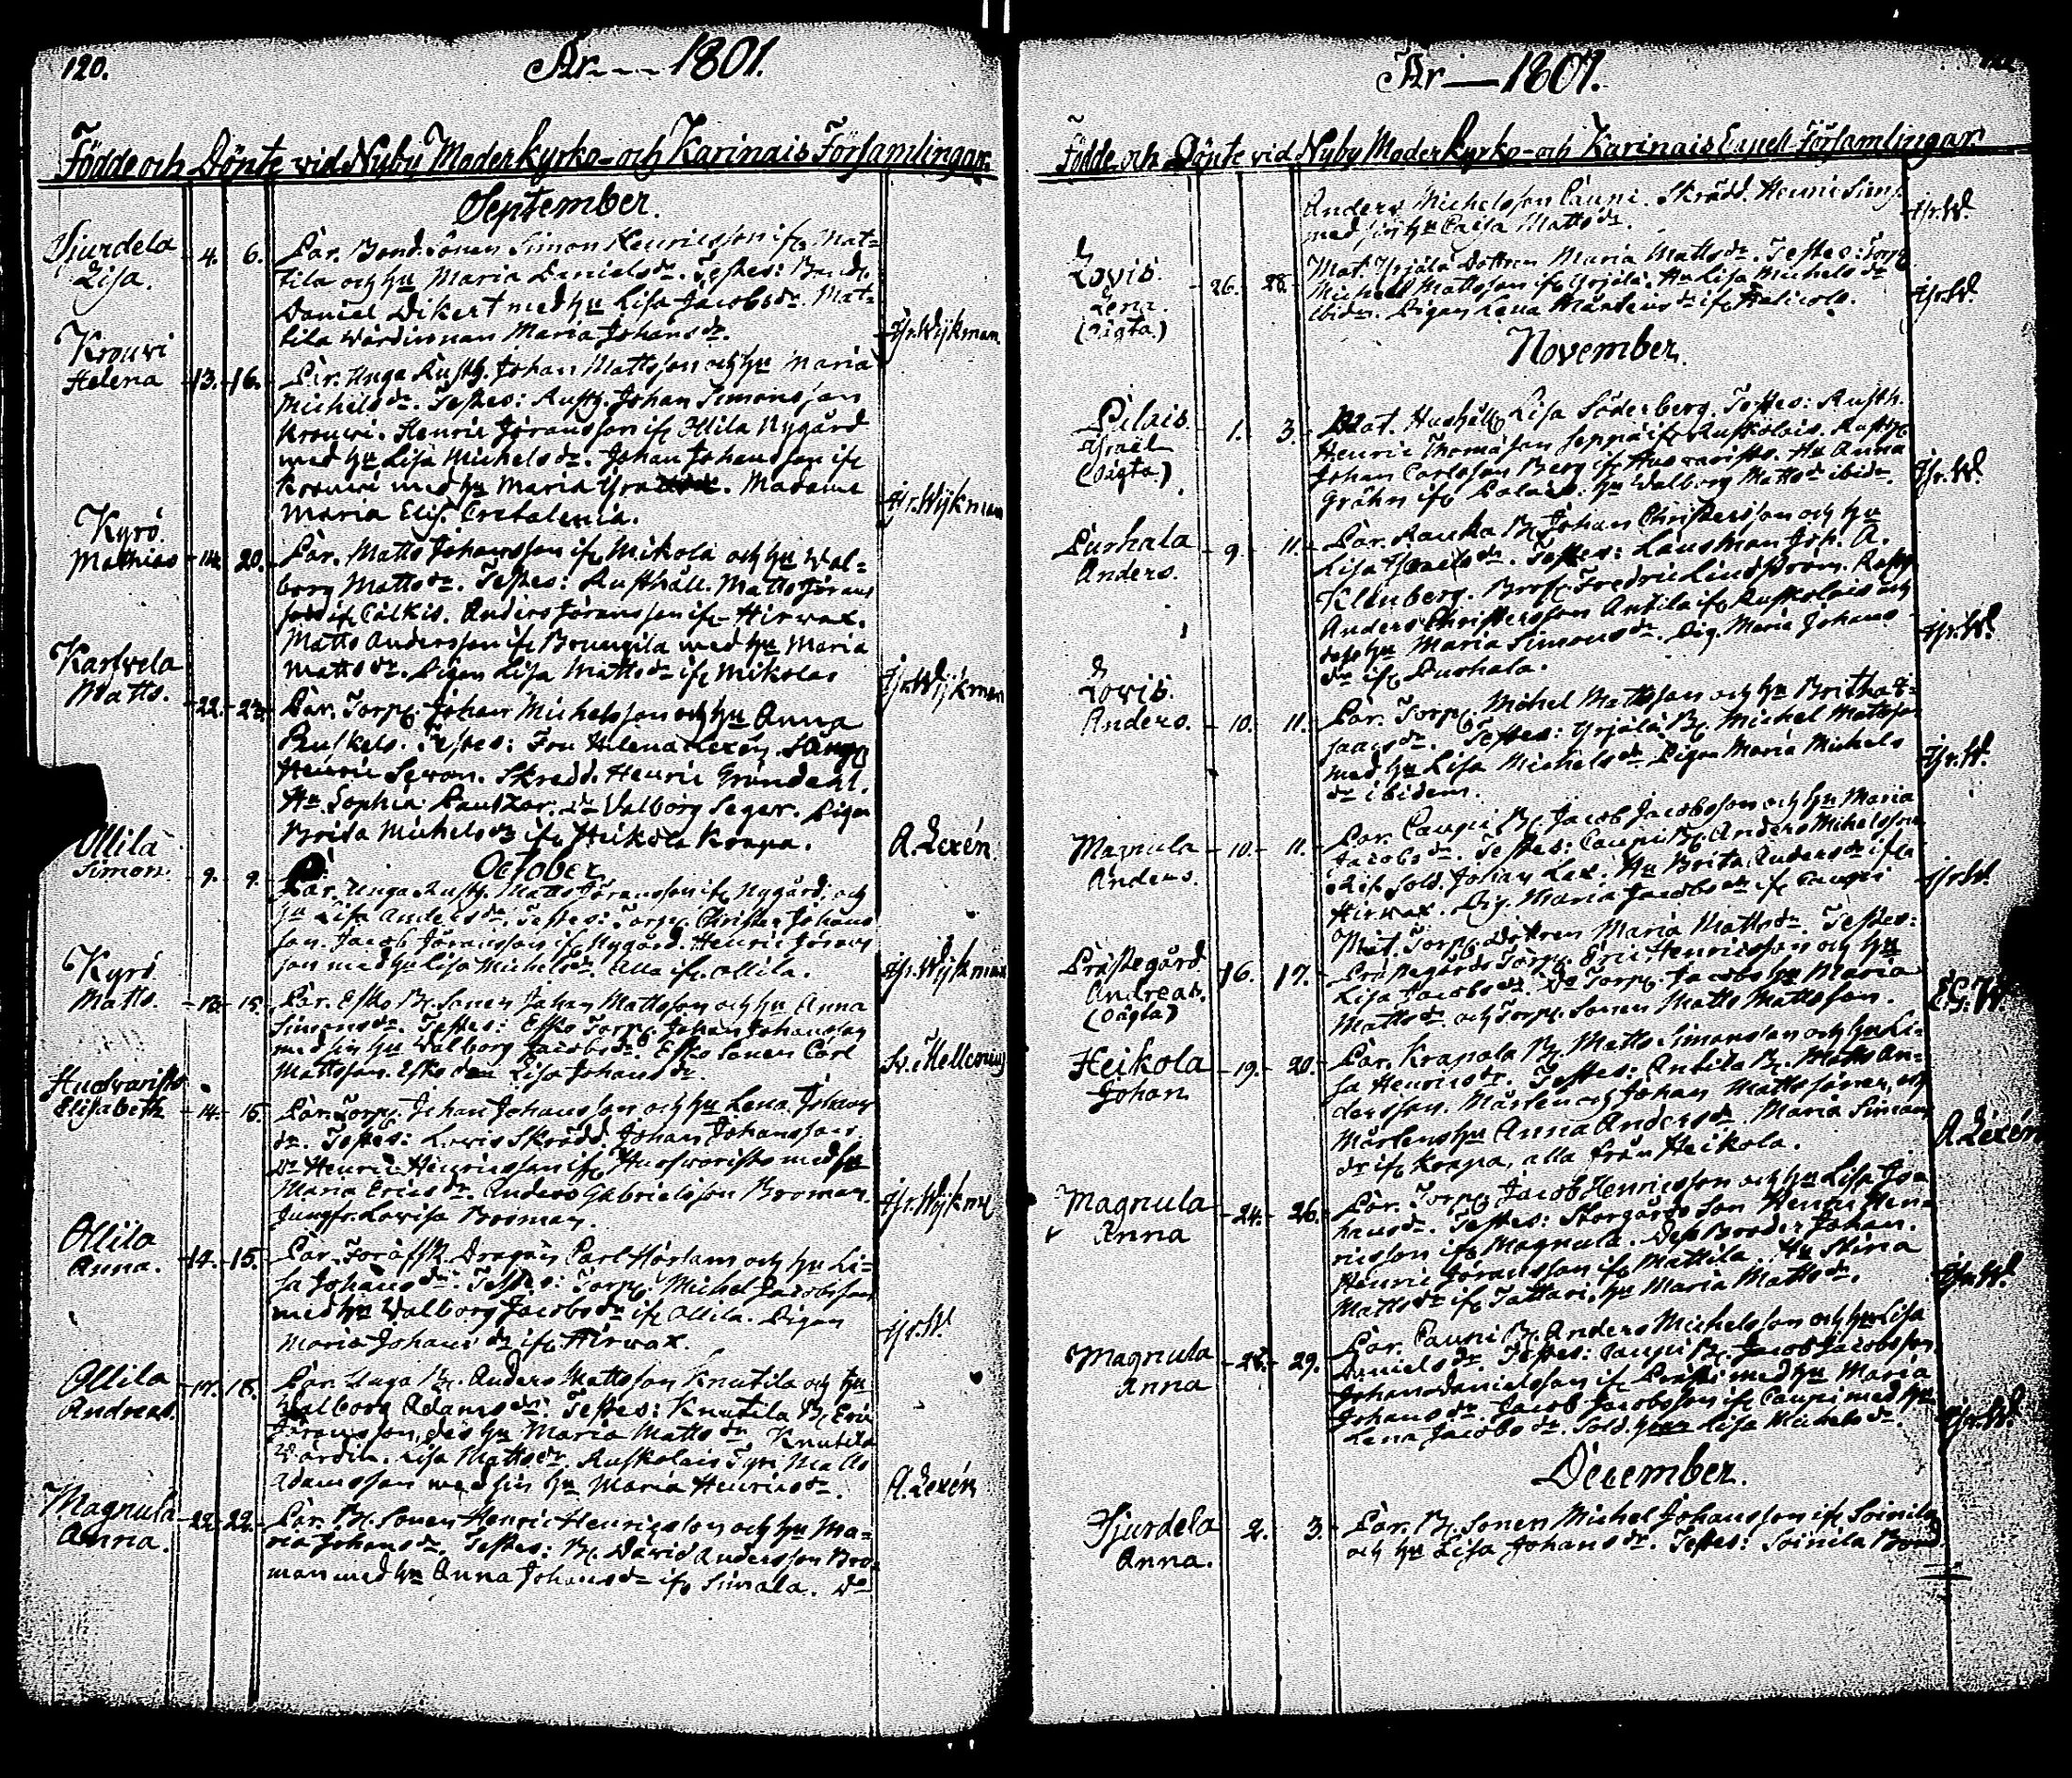 120.
År --- 1801.
Födde och Dönte vid Nyby Moderkyrko- och Karinais Församlingar.
September.
Hjurdela 4. 6. Par. Bond. Sonen Simon Henricsson ifr. Mat=
Lisa. tila och hu Maria Daniels dr. Testes: Bond.
Daniel Dikert med hu Lisa Jacobs dr. Mat=
tila Wärdinnan Maria Johans dr. Hjr. Wijkman
Krouvi
Helena 13. 16. Par. Unga Rusth. Johan Mattsson och hu Maria
Michels dr. Testes: Rusth. Johan Simonsson
Krouvi. Henric Jöransson ifr. Ollila Nygård
med hu Lisa Michels dr. Johan Johansson ifr.
Krouvi med hu Maria. Madame
Maria Elis. Cretalenia. Hjr. Wijkman
Kyrö.
Mathias 14. 20. Par. Matts Johansson ifr. Mikola och hu Wal=
borg Matts dr. Testes: Rusthåll. Matts Jörans
son ifr. Calkis. Anders Jöransson ifr. Hirwax.
Matts Andersson ifr. med hu Maria
Matts dr. Pigan Lisa Matts dr. ifr. Mikola Hjr. Wijkman
Karswela
Matts. 22. 23. Par. Torp. Johan Michelsson och hu Anna
Testes: Fru Helena Lexén.
Henric. Skrädd. Henric Gröndahl.
Hu Sophia. Do Valborg Seger. Piga
Brita Michels dr. ifr. Heikola Krapa. A. Lexén.
October.
Ollila
Simon. 9. 9. Par. Unga Rusth. Matts Jöransson ifr. Nygård, och
hu Lisa Anders dr. Testes: Torp. Christer Johans
son. Jacob Jöransson ifr. Nygård. Henric Jörans
son med hu Lisa Michels dr. Alla ifr. Ollila. Hjr. Wijkman
Kyrö
Matts. 13. 15. Par. Esko B. Sonen Johan Mattsson och hu Anna
Simons dr. Testes: Esko Torp. Johan Johansson
med sin hu Walborg Jacobs dr. Esko Sonen Carl
Mattsson. Esko Lisa Johans dr.
Husvaristo
Elisabeth 14. 15. Par. Torp. Johan Johansson och hu Lena Johans
dr. Testes: Lovis Skrädd. Johan Johansson.
Do Henric Henricsson ifr. Husvaristo med hu
Maria Erics dr. Anders Gabrielsson Broman.
Jungfr. Lovisa Broman. Hjr. Wijkm
Ollila
Anna. 14. 15. Par. Dragon Carl och hu Li=
sa Johans dr. Testes: Torp. Michel Jacobsson
med hu Walborg Jacobs dr. ifr. Ollila. Pigan
Maria Johans dr. ifr. Hirwax. Hjr. W.
Ollila 17. 18. Par. Unga B. Anders Mattsson Knutila och hu
Andreas. Walborg Adams dr. Testes: Knutila B. Eric
Jöransson, dess hu Maria Matts dr. Knutila
Wärdin. Lisa Matts dr. Ruskolais Matts
Adamsson med sin hu Maria Henrics dr. A. Lexén
Magnula 22. 22. Par. B. Sonen Henric Henricsson och hu Ma=
Anna. ria Johans dr. Testes: B. David Andersson Bro=
man med hu Anna Johans dr. ifr. Simala. Do
År — 1801.
Födde och Dönte vid Nyby Moderkyrko- och Karinais Capell Församlingar.
Anders Michelsson Caupi. Skrädd. Henric Sims
med sin hu Caisa Matts dr. Hjr. W.
Lovis. 26. 28. Mat. Yrjälä Dottren Maria Matts dr. Testes: Torp.
Lena. Michel Mattsson ifr. Yrjälä. Hu Lisa Michels dr.
(oägta) ibid. Pigan Lena Mårtens dr. ifr. Halicola. Hjr. W.
November.
Pilais 1. 3. Mat. Hushåll. Lisa Söderberg. Testes: Rusth.
Israel Henric Thomasson Seppä ifr. Ruskolais. Rusth.
(oägta.) Johan Carlsson Berg ifr. Husvaristo. Hu Anna
Gråhn ifr. Palais. hu Walborg Matts dr. ibid. Hjr. W.
Purhala 9. 11. Par. Rauka B. Johan Christersson och hu
Anders. Lisa Israels dr. Testes: Länsman Joh. A.
Klenberg. Fredric Lindström.
Anders Christersson Antila ifr. Ruskolais och
dess hu Maria Simons dr. Pig. Maria Johans
dr. ifr. Purhala. Hjr. W.
Lovis.
Anders. 10. 11. Par. Torp. Michel Mattsson och hu Britha I=
saacs dr. Testes: Yrjälä B. Michel Mattsson
med hu Lisa Michels dr. Pigan Maria Michels
dr. ibidem. Hjr. W.
Magnula 10. 11. Par. Caupi B. Jacob Jacobsson och hu Maria
Anders. Jacobs dr. Testes: Caupi B. Anders Michelsson
Sold. Johan Lax. Hu Brita Anders dr. ifr.
Hirwax. Pig. Maria Jacobs dr. ifr. Caupi Hjr. W.
Mat. Torp. Dottren Maria Matts dr. Testes:
Prästegård 16. 17. Prästegårds Torp. Eric Henricsson och hu
Andreas. Lisa Jacobs dr. Do Torp. Jacobs hu Maria
(oägta) Matts dr. och Torp. Sonen Matts Mattsson.
Heikola 19. 20. Par. Krapala B. Matts Simonsson och hu Li=
Johan sa Henrics dr. Testes: Antila B. Matts An=
dersson. Mårten och Johan Mattssöner, och
Mårtens hu Anna Anders dr. Maria Simons
dr. ifr. Krapa, alla från Heikola. A. Lexén
Magnula 24. 26. Par. Torp. Jacob Henricsson och hu Lisa Jo=
Anna hans dr. Testes: Storgårds Son Henric Hen=
ricsson ifr. Magnula. Dess Broder Johan.
Henric Jöransson ifr. Mattila. Hu Stina
Matts dr. ifr. Tattari. hu Maria Matts dr. Hjr. W.
Magnula 28. 29. Par. Caupi B. Anders Michelsson och hu Lisa
Anna Daniels dr. Testes: Caupi B. Jacob Jacobsson.
Johan Danielsson ifr. med hu Maria
Johans dr. Jacob Jacobsson ifr. Caupi med hu
Lena Jacobs dr. Sold. Lisa Michels dr. Hjr. W.
December.
Hjurdela 2. 3. Par. B. Sonen Michel Johansson ifr. Soinila
Anna. och hu Lisa Johans dr. Testes: Soinila Bond.